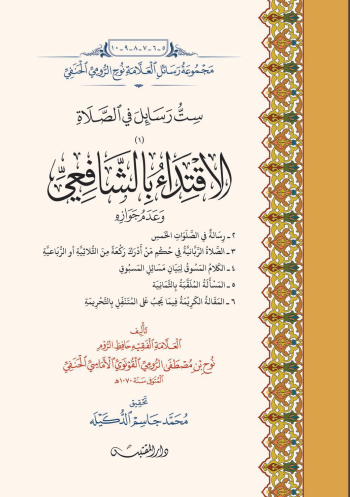 ٥-٦-٧-٨-٩-١٠
مَجْمُوعَةُ رَسَائِلِ العَلَّامَةِ نُوحٍ الرُّومِيِّ الحَنَفِيِّ
سِتُّ رَسَايِلَ فِي الصَّلَاةِ
(١)
الاقْتِدَاءُ بِالشَّافِعِيِّ
وَعَدَمُ جَوَازِهِ
٢- رِسَالَةٌ فِي الصَّلَوَاتِ الخَمْسِ
٣- الصَّلَاةُ الرَّبَّانِيَّةُ فِي حُكْمِ مَنْ أَدْرَكَ رَكْعَةً مِنَ الثُّلَاثِيَّةِ أَوِ الرُّبَاعِيَّةِ
٤- الكَلَامُ المَسُوقُ لِبَيَانِ مَسَائِلِ المَسْبُوقِ
٥- المَسْأَلَةُ المُلَقَّبَةُ بِالثَّمَانِيَةِ
٦- المَقَالَةُ الكَرِيمَةُ فِيمَا يَجِبُ عَلَى المُتَنَفِّلِ بِالتَّحْرِيمَةِ
تَأْلِيفُ
العَلَّامَةِ الفَقِيهِ حَافِظِ الرُّومِ
نُوحِ بْنِ مُصْطَفَى الرُّومِيِّ القُونَوِيِّ الأَمَاسِيِّ الحَنَفِيِّ
المُتَوَفَّى سَنَةَ ١٠٧٠هـ
تَحْقِيقُ
مُحَمَّد جَاسِم الدُّكَيلَه
دار المقتبس